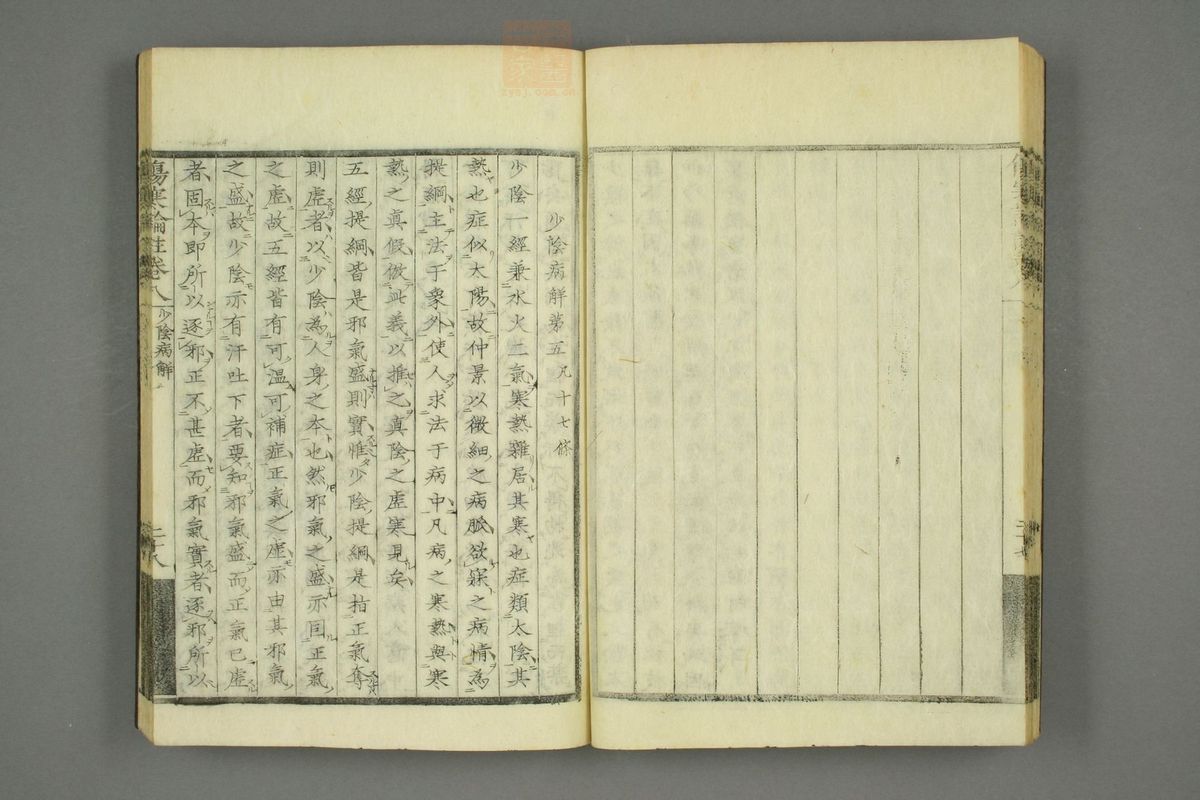 少陰病解第五凡十七條
少陰一經兼水火二氣寒熱雜居其寒也症類太陰其
熱也症似太陽故仲景以微細之病脈欲寐之病情為
提綱主法于衆外使人求法于病中凡病之寒熱與寒
熱之真假倣此義以推之真陰之虛寒見矣
五經提綱皆是邪氣盛則實惟少陰提綱是指正氣奪
則虛者以少陰為人身之本也然邪氣之盛亦囙正氣
之虛故五經皆有可溫可補症正氣之虛亦由其邪氣
之盛故少陰亦有汗吐下者要知邪氣盛而正氣已虛
者固本即所以逐邪正不甚虛而邪氣實者逐邪所以
傷寒論註卷八
少陰病解
二十八
zysj.com.cn